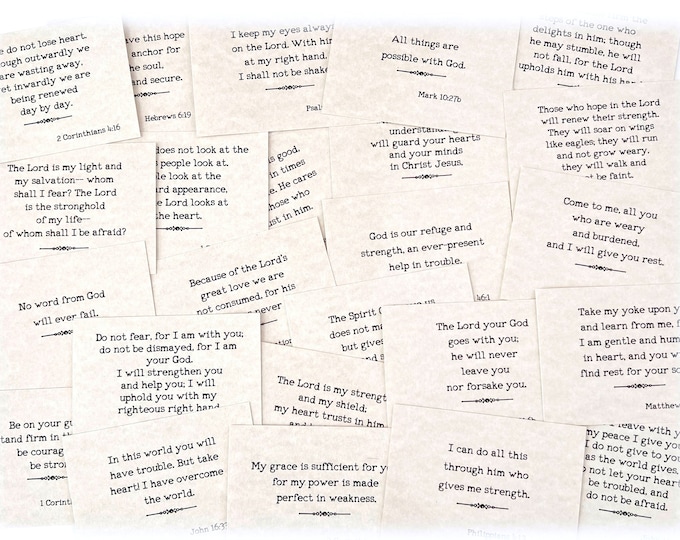 do not lose heart.
outwardly we
are wasting away,
inwardly we are
being renewed
day by day.
2 Corinthians 4:16
this hope
anchor for
the soul,
and secure.
Hebrews 6:19
I keep my eyes
on the Lord. With
at my right hand,
I shall not be
All things are
possible with God.
Mark 10:27b
of the one who
delights in him; though
he may stumble, he will
not fall, for the Lord
upholds him with his
Those who hope in the Lord
will renew their strength.
They will soar on wings
like eagles; they will run
and not grow weary,
they will walk and
be faint.
The Lord is my light and
my salvation— whom
shall I fear? The Lord
is the stronghold
of my life—
of whom shall I be afraid?
does not look at the
people look at.
appearance,
Lord looks at
the heart.
good,
in times
He cares
who
in him.
will guard your hearts
and your minds
in Christ Jesus.
Come to me, all you
who are weary
and burdened,
and I will give you rest.
God is our refuge and
strength, an ever-present
help in trouble.
46:1
No word from God
will ever fail.
Because of the Lord's
great love we are
not consumed, for his
never
The Spirit
does not
but gives
The Lord your God
goes with you;
he will never
leave you
nor forsake you.
Take my yoke upon
and learn from me,
I am gentle and
in heart, and you
find rest for your
Do not fear, for I am with you;
do not be dismayed, for I am
your God.
I will strengthen you
and help you; I will
uphold you with my
righteous right hand
The Lord is my
and my shield;
my heart trusts in
Be on your
firm in
be
be
1
In this world you will
have trouble. But take
heart! I have overcome
the world.
John 16:33
My grace is sufficient for
for my power is made
perfect in weakness.
I can do all this
through him who
gives me strength.
leave with
my peace I give
I do not give to
as the world gives.
not let your
be troubled, and
do not be afraid.